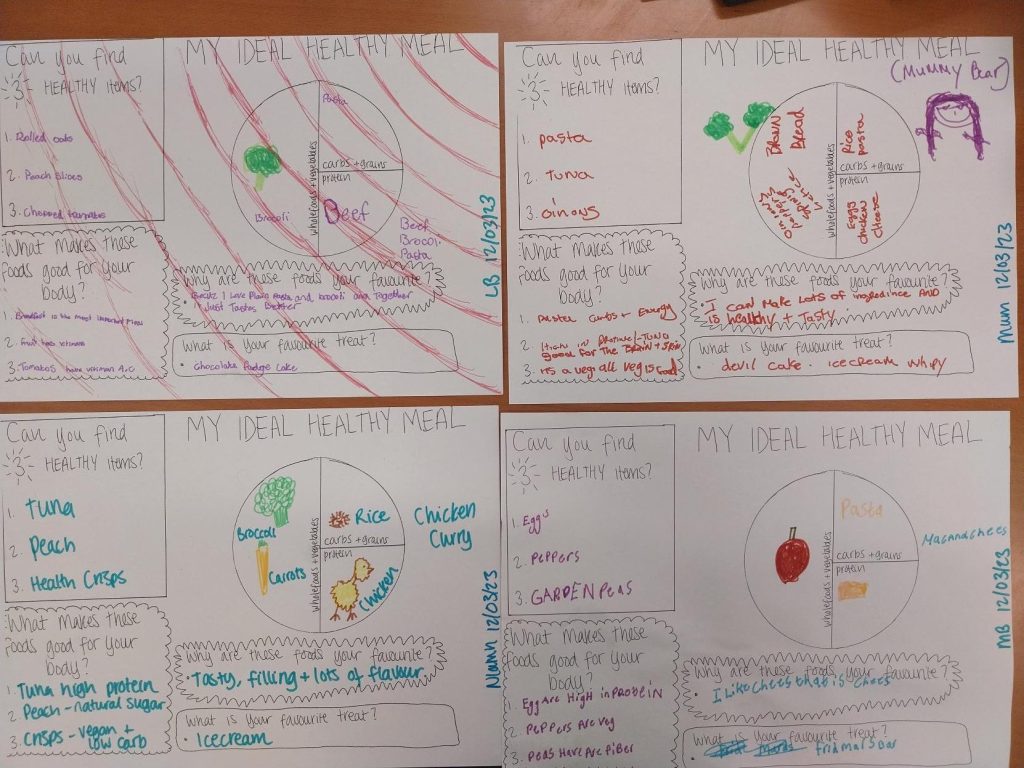 Can you find
3 HEALTHY items?
1. Rolled oats
2. Peach Slices
3. Chopped tomatos
What makes these
foods good for your
body?
1. Breakfast is the most important meal
2. Fruit has vitimans
3. Tomatos have vitiman A,C
MY IDEAL HEALTHY MEAL
Pasta
carbs + grains
protein
wholefoods + vegetables
Brocoli
Beef
Beef
Brocoli
Pasta
LB 12/03/23
Why are these foods your favourite?
I Love Plain Pasta and brocoli and Together
Just Tastes Better
What is your favourite treat?
• Chocolate Fudge Cake
Can you find
3 HEALTHY items?
1. pasta
2. Tuna
3. oinons
What makes these
foods good for your
body?
1. Pasta carbs + Energy
2. High in Protine - Tuna
good for The Brain + Skin
3. its a veg all veg is Good
MY IDEAL HEALTHY MEAL
(MUMMY Bear)
Brown
Bread
Rice
pasta
carbs + grains
protein
wholefoods + vegetables
Egg
chicken
cheese
Mum 12/03/23
Why are these foods your favourite?
• I can Make LOTS of ingredince AND
is healthy + Tasty.
What is your favourite treat?
• devil cake. icecream whipy
Can you find
3 HEALTHY items?
1. Tuna
2. Peach
3. Health Crisps
What makes these
foods good for your
body?
1. Tuna high protein
2. Peach - natural sugar
3. Crisps - vegan +
low carb
MY IDEAL HEALTHY MEAL
Broccoli
Carrots
Rice
carbs + grains
protein
wholefoods + vegetables
Chicken
Chicken
Curry
Niamh 12/03/23
Why are these foods your favourite?
• Tasty, filling + lots of flavour
What is your favourite treat?
• Icecream
Can you find
3 HEALTHY items?
1. Eggs
2. Peppers
3. GARDEN Peas
What makes these
foods good for your
body?
1. Egg Are High in Probein
2. Peppers Are veg
3. Peas Have Are Fiber
MY IDEAL HEALTHY MEAL
Pasta
carbs + grains
protein
wholefoods + vegetables
Macandchees
MB 12/03/23
Why are these foods your favourite?
• I Like chees that is chees
What is your favourite treat?